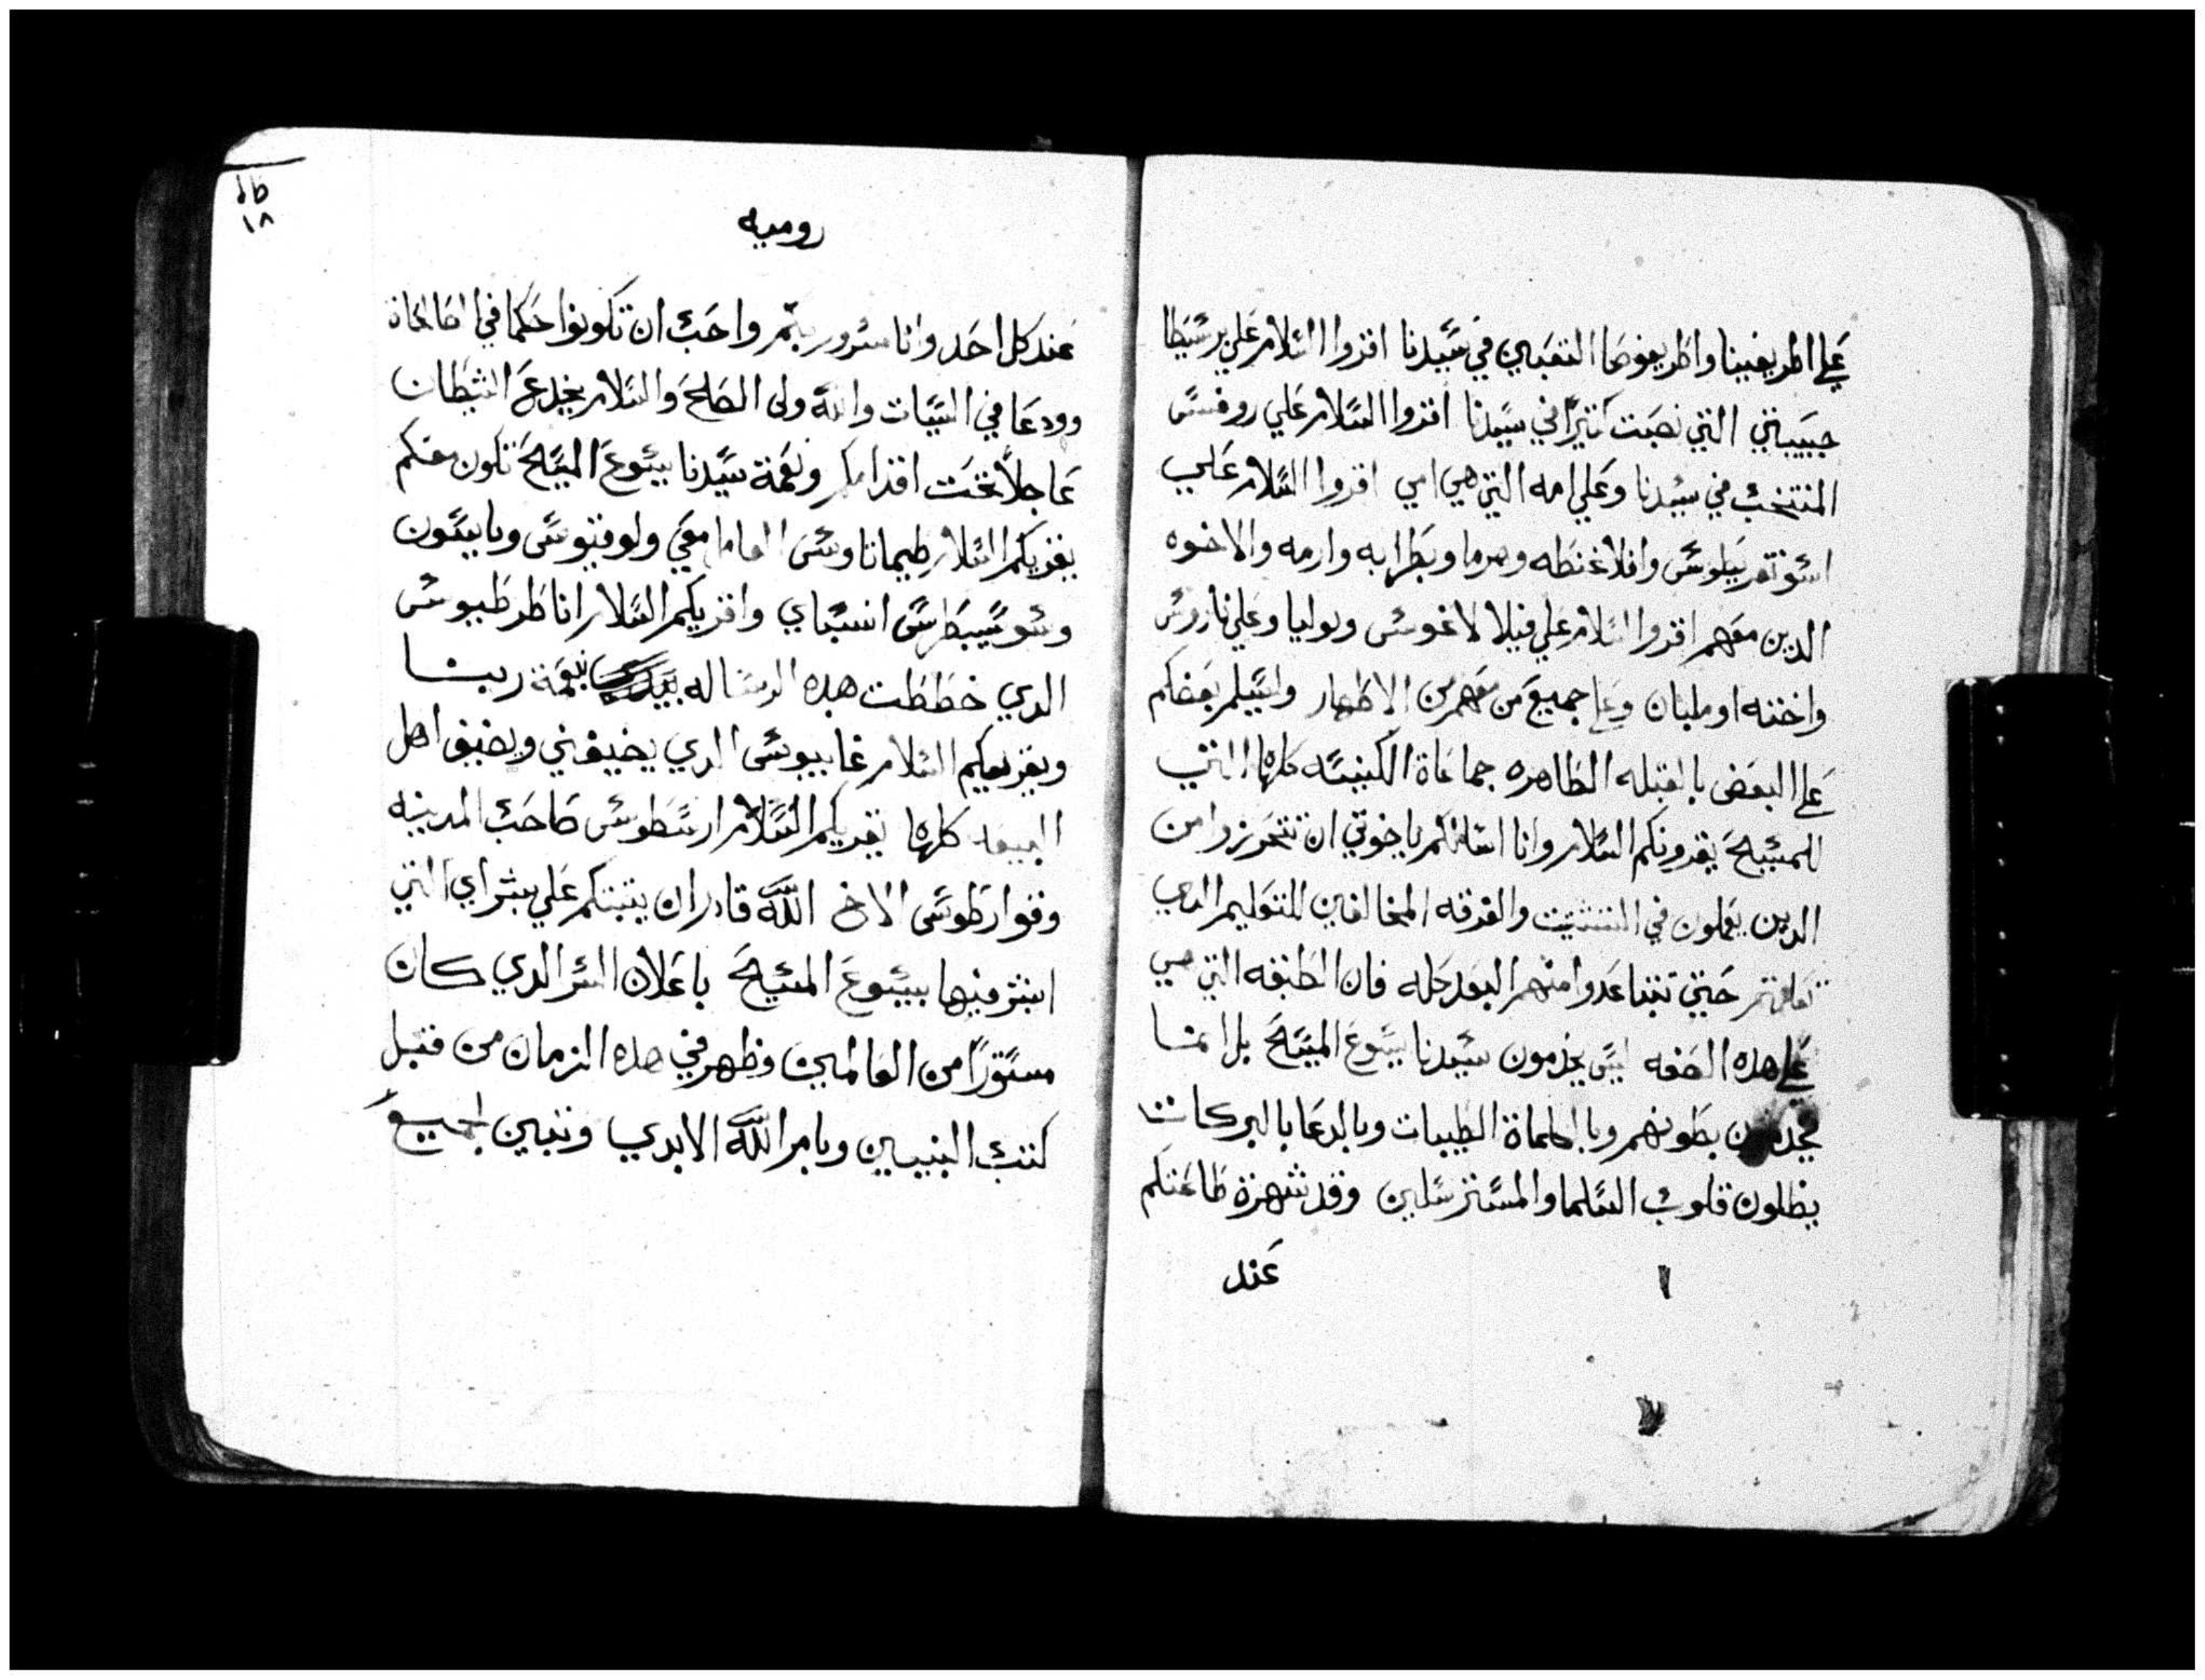 علي اطريفينا واطريفوصا التعبين في سيدنا اقروا السلام علي برسيطا
حبيبتي التي نصبت كتيرًا في سيدنا اقروا السلام علي روفس
المنتخب في سيدنا وعلي امه التي هي امي اقروا السلام علي
وافلاغنطه وهرما وبطرابه وارمه والاخوه
الدين معهم اقروا السلام علي فيلالاغوس ويوليا وعلي ناروس
واخته اوملبان وعلي جميع من معهم من الاطهار وليسلم بعضكم
علي البعض بالقبله الطاهره جماعاة الكنيسه كلها التي
للمسيح يقرونكم السلام وانا اسالكم ياخوتي ان تتحرزوا من
الدين يعملون في التشتيت والفرقه المخالفين للتعليم الدي
تعلمتم حتي تتباعدوا منهم البعد كله فان الطبقه التي هي
علي هده الصفه ليس يخدمون سيدنا يسوع المسيح بل انما
يخدمون بطونهم وبالكلماة الطيبات وبالدعا بالبركات
يظلون قلوب السلما والمسترسلين وقد شهرة طاعتكم
عند
١٨
روميه
عند كل احد وانا مسرور بكم واحب ان تكونوا حكما في الصالحاة
وودعا في السيات والله ولي الصلح والسلام يخدع الشيطان
عاجلاً تحت اقدامكم ونعمة سيدنا يسوع المسيح تكون معكم
يقريكم السلام طيماتاوس العامل معي ولوقيوس وياسون
وسوسيبطرس انسباي واقريكم السلام انا طرطيوس
الدي خططت هده الرساله بيدي بنعمة ربنا
ويقريكم السلام غاييوس الدي يضيفني ويضيف اهل
البيعه كلها يقريكم السلام ارسطوس صاحب المدينه
وقوارطوس الاخ اللَّه قادر ان يتبتكم علي بشراي التي
ابشر فيها بيسوع المسيح باعلان السر الدي كان
مستورًا من العالمين وظهر في هده الزمان من قبل
كتب النبيين وبامر اللَّه الابدي وتبين لجميع